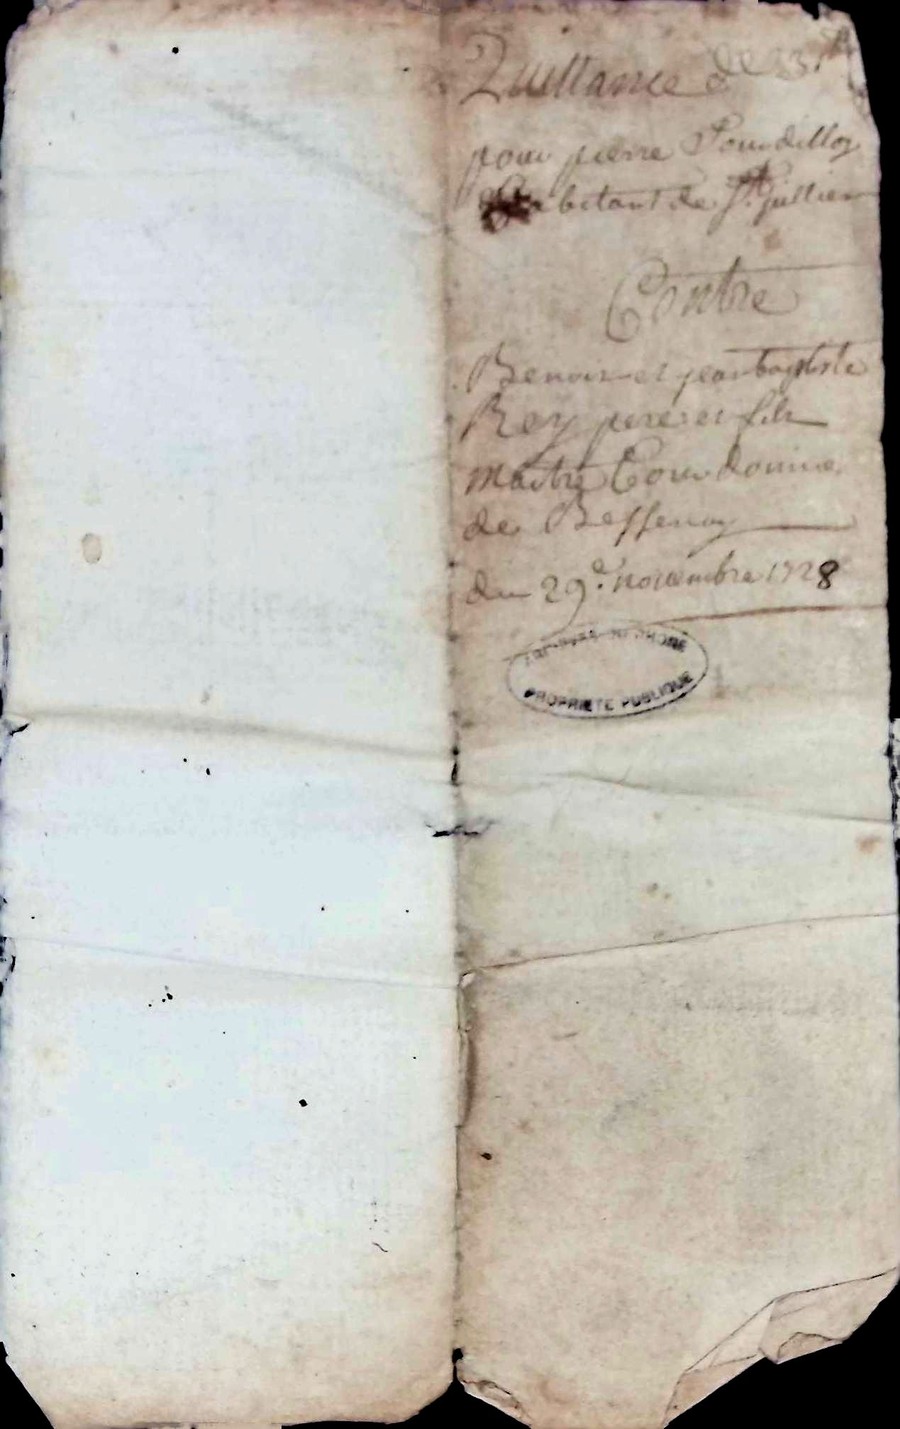 Quittance de 33ᵗᵗ
pour pierre
habitant de Sᵗ Jullien
Contre
Benoist et jean baptiste
Rey pere et fils
maitre Courdonnie
de Bessenay
du 29ᵉ novembre 1728
ARCHIVES DU RHONE
PROPRIETE PUBLIQUE